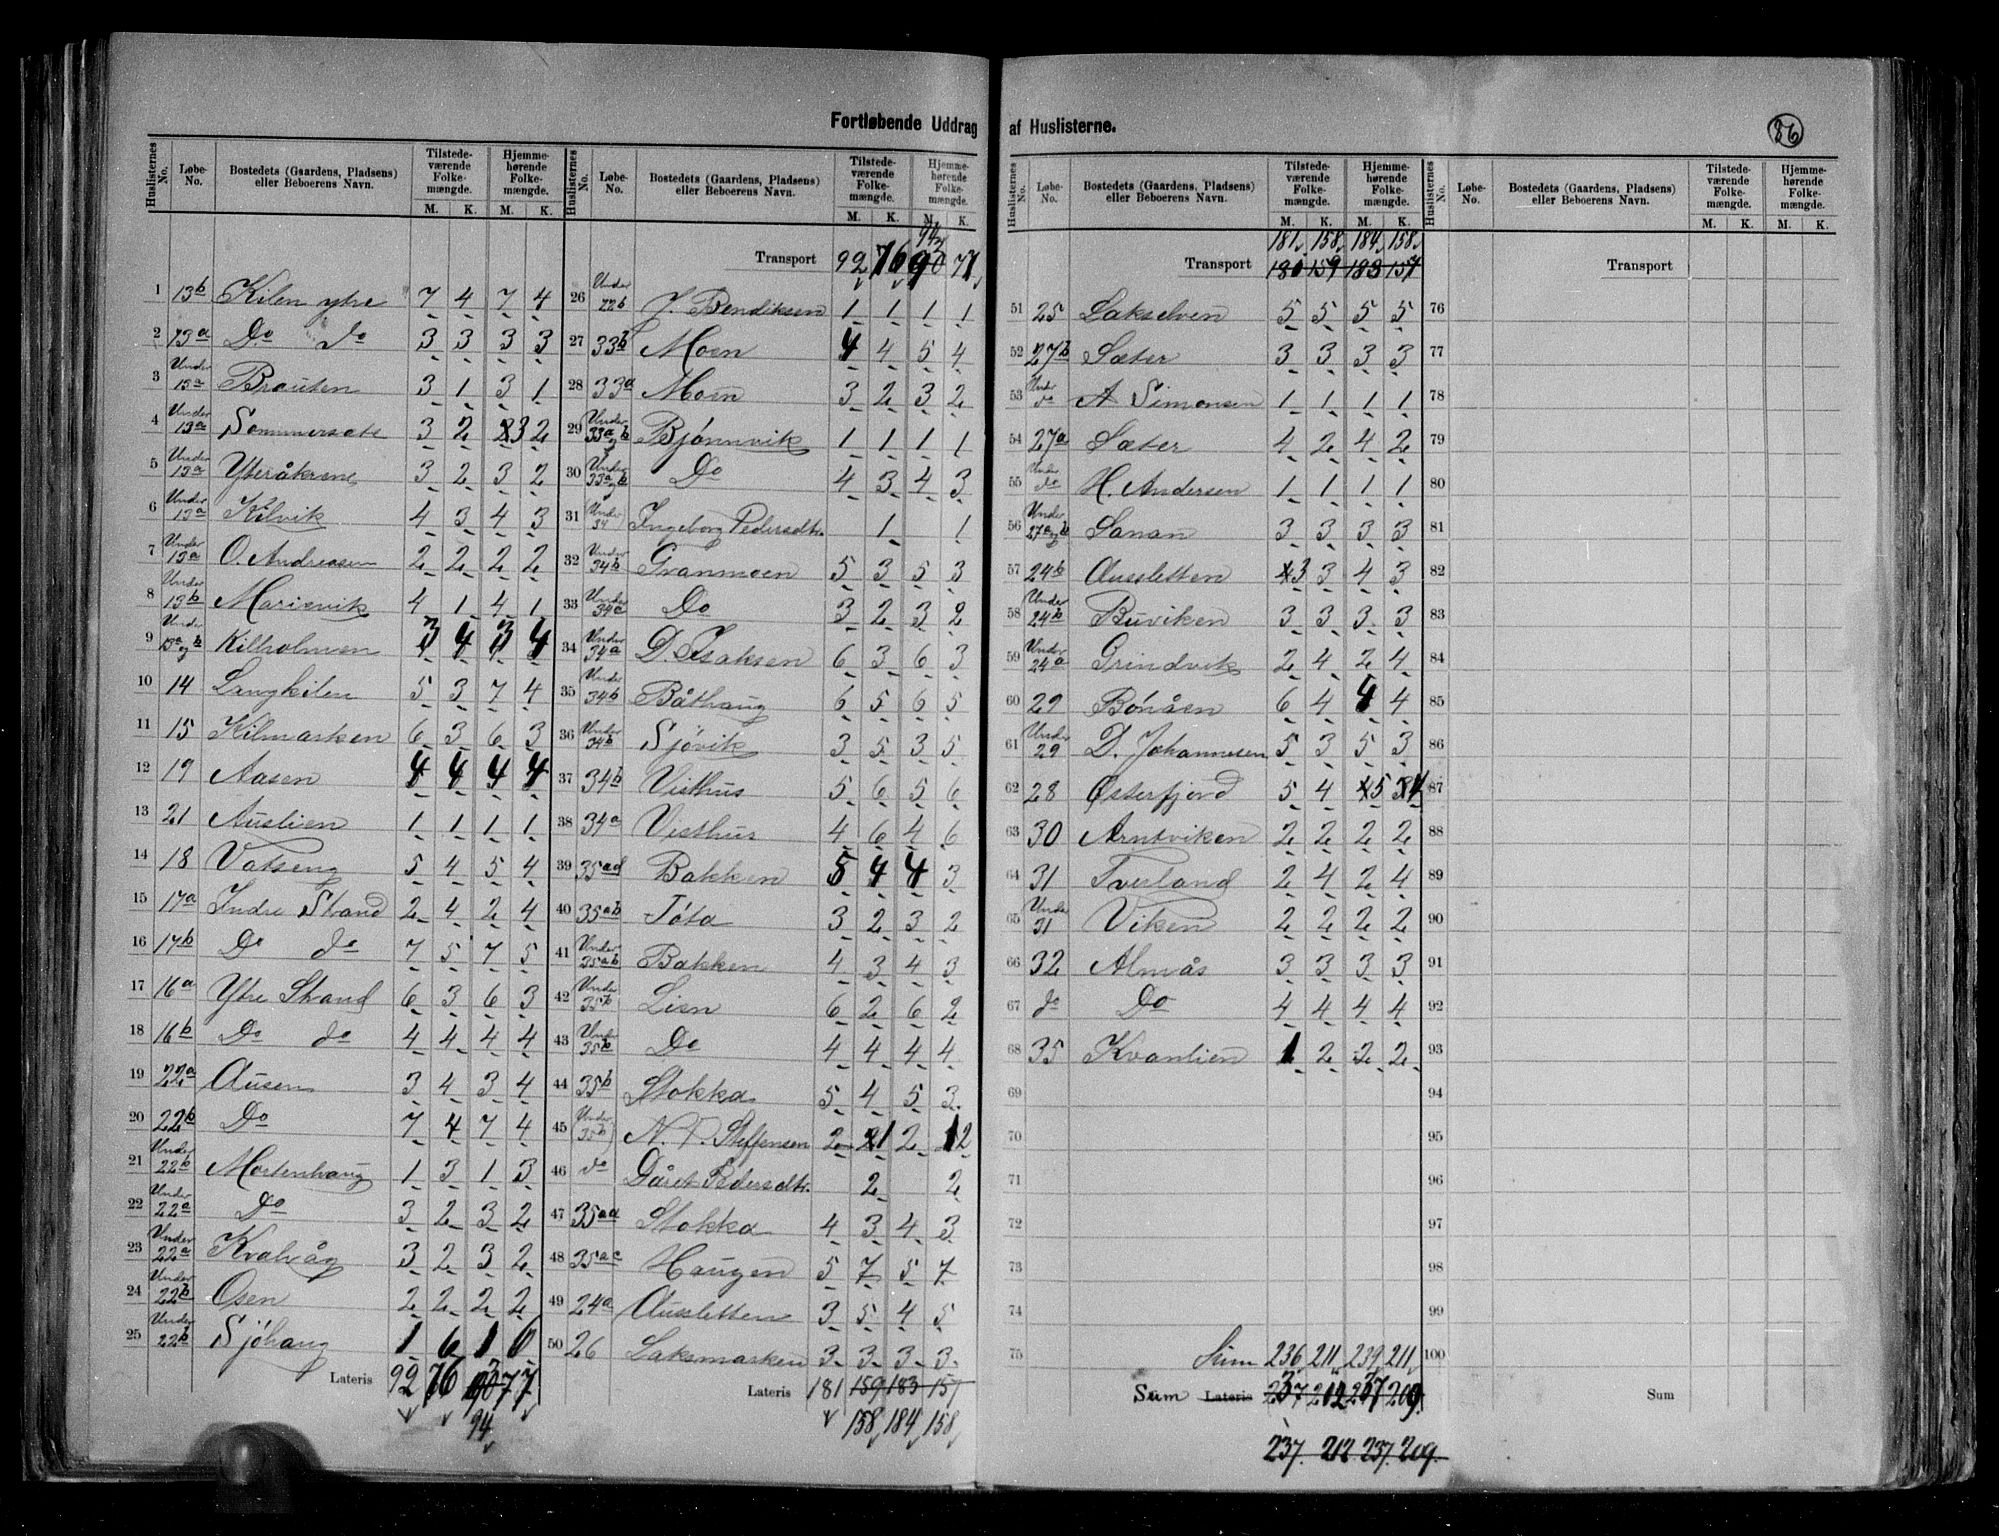 Fortløbende Uddrag af Huslisterne.
86
Huslisternes No. Løbe-No. Bostedets (Gaardens, Pladsens) eller Beboerens Navn. Tilstedeværende Folkemængde. M. K. Hjemmehørende Folkemængde. M. K.
1 13b Kilen ytre 7 4 7 4
2 13a Do do 3 3 3 3
3 Under 13a Brauten 3 1 3 1
4 Under 13a Sommersæte 3 2 3 2
5 Under 13a Yteråkrene 3 2 3 2
6 Under 13a Kilvik 4 3 4 3
7 Under 13a O. Andreasen 2 2 2 2
8 Under 13b Marievik 4 1 4 1
9 Under 13a og b Kilholmen 3 4 3 4
10 14 Langkilen 5 3 7 4
11 15 Kilmarken 6 3 6 3
12 19 Aasen 4 4 4 4
13 21 Auslien 1 1 1 1
14 18 Vatseng 5 4 5 4
15 17a Indre Strand 2 4 2 4
16 17b Do do 7 5 7 5
17 16a Ytre Strand 6 3 6 3
18 16b Do do 4 4 4 4
19 22a Ausen 3 4 3 4
20 22b Do 7 4 7 4
21 Under 22b Mortenhaug 1 3 1 3
22 Under 22a Do 3 2 3 2
23 Under 22a Kvalvåg 3 2 3 2
24 Under 22b Osen 2 2 2 2
25 Under 22b Sjøhaug 1 6 1 6
Lateris 92 76 90 77
94
Huslisternes No. Løbe-No. Bostedets (Gaardens, Pladsens) eller Beboerens Navn. Tilstedeværende Folkemængde. M. K. Hjemmehørende Folkemængde. M. K.
94
Transport 92 76 90 77
26 Under 22b J. Bendiksen 1 1 1 1
27 33b Moen 4 4 5 4
28 33a Moen 3 2 3 2
29 Under 33a og b Bjønnvik 1 1 1 1
30 Under 33a og b Do 4 3 4 3
31 Under 34 Ingeborg Pedersdtr. 1 1
32 Under 34b Granmoen 5 3 5 3
33 Under 34a Do 3 2 3 2
34 Under 34a D. Isaksen 6 3 6 3
35 Under 34b Båthaug 6 5 6 5
36 Under 34b Sjøvik 3 5 3 5
37 34b Visthus 5 6 5 6
38 34a Visthus 4 6 4 6
39 35ad Bakken 5 4 4 3
40 35ab Tøta 3 2 3 2
41 Under 35ab Bakken 4 3 4 3
42 Under 35b Lien 6 2 6 2
43 Under 35b Do 4 4 4 4
44 35b Stokka 5 4 5 3
45 (Under 35b) N. P. Steffensen 2 1 2 2
46 do Dåret Pedersdtr. 2 2
47 35aa Stokka 4 3 4 3
48 35ac Haugen 5 7 5 7
49 24a Aussletten 3 5 4 5
50 26 Laksmarken 3 3 3 3
Lateris 181 159 183 157
158 184 158
Huslisternes No. Løbe-No. Bostedets (Gaardens, Pladsens) eller Beboerens Navn. Tilstedeværende Folkemængde. M. K. Hjemmehørende Folkemængde. M. K.
181 158 184 158
Transport 180 159 183 157
51 25 Lakselven 5 5 5 5
52 27b Sæter 3 3 3 3
53 Under do A Simonsen 1 1 1 1
54 27a Sæter 4 2 4 2
55 Under do H. Andersen 1 1 1 1
56 Under 27a og b Sanan 3 3 3 3
57 24b Aussletten 3 3 4 3
58 Under 24b Buviken 3 3 3 3
59 Under 24a Grindvik 2 4 2 4
60 29 Bønåen 6 4 4 4
61 Under 29 D. Johannesen 5 3 5 3
62 28 Østerfjord 5 4 5 4
63 30 Arntviken 2 2 2 2
64 31 Tverland 2 4 2 4
65 Under 31 Viken 2 2 2 2
66 32 Almås 3 3 3 3
67 do Do 4 4 4 4
68 35 Kvanlien 1 2 2 2
69
70
71
72
73
74
75 Sum 236 211 239 211
Sum Lateris 237 212 237 209.
237. 212 237. 209.
Huslisternes No. Løbe-No. Bostedets (Gaardens, Pladsens) eller Beboerens Navn. Tilstedeværende Folkemængde. M. K. Hjemmehørende Folkemængde. M. K.
Transport
76
77
78
79
80
81
82
83
84
85
86
87
88
89
90
91
92
93
94
95
96
97
98
99
100
Sum